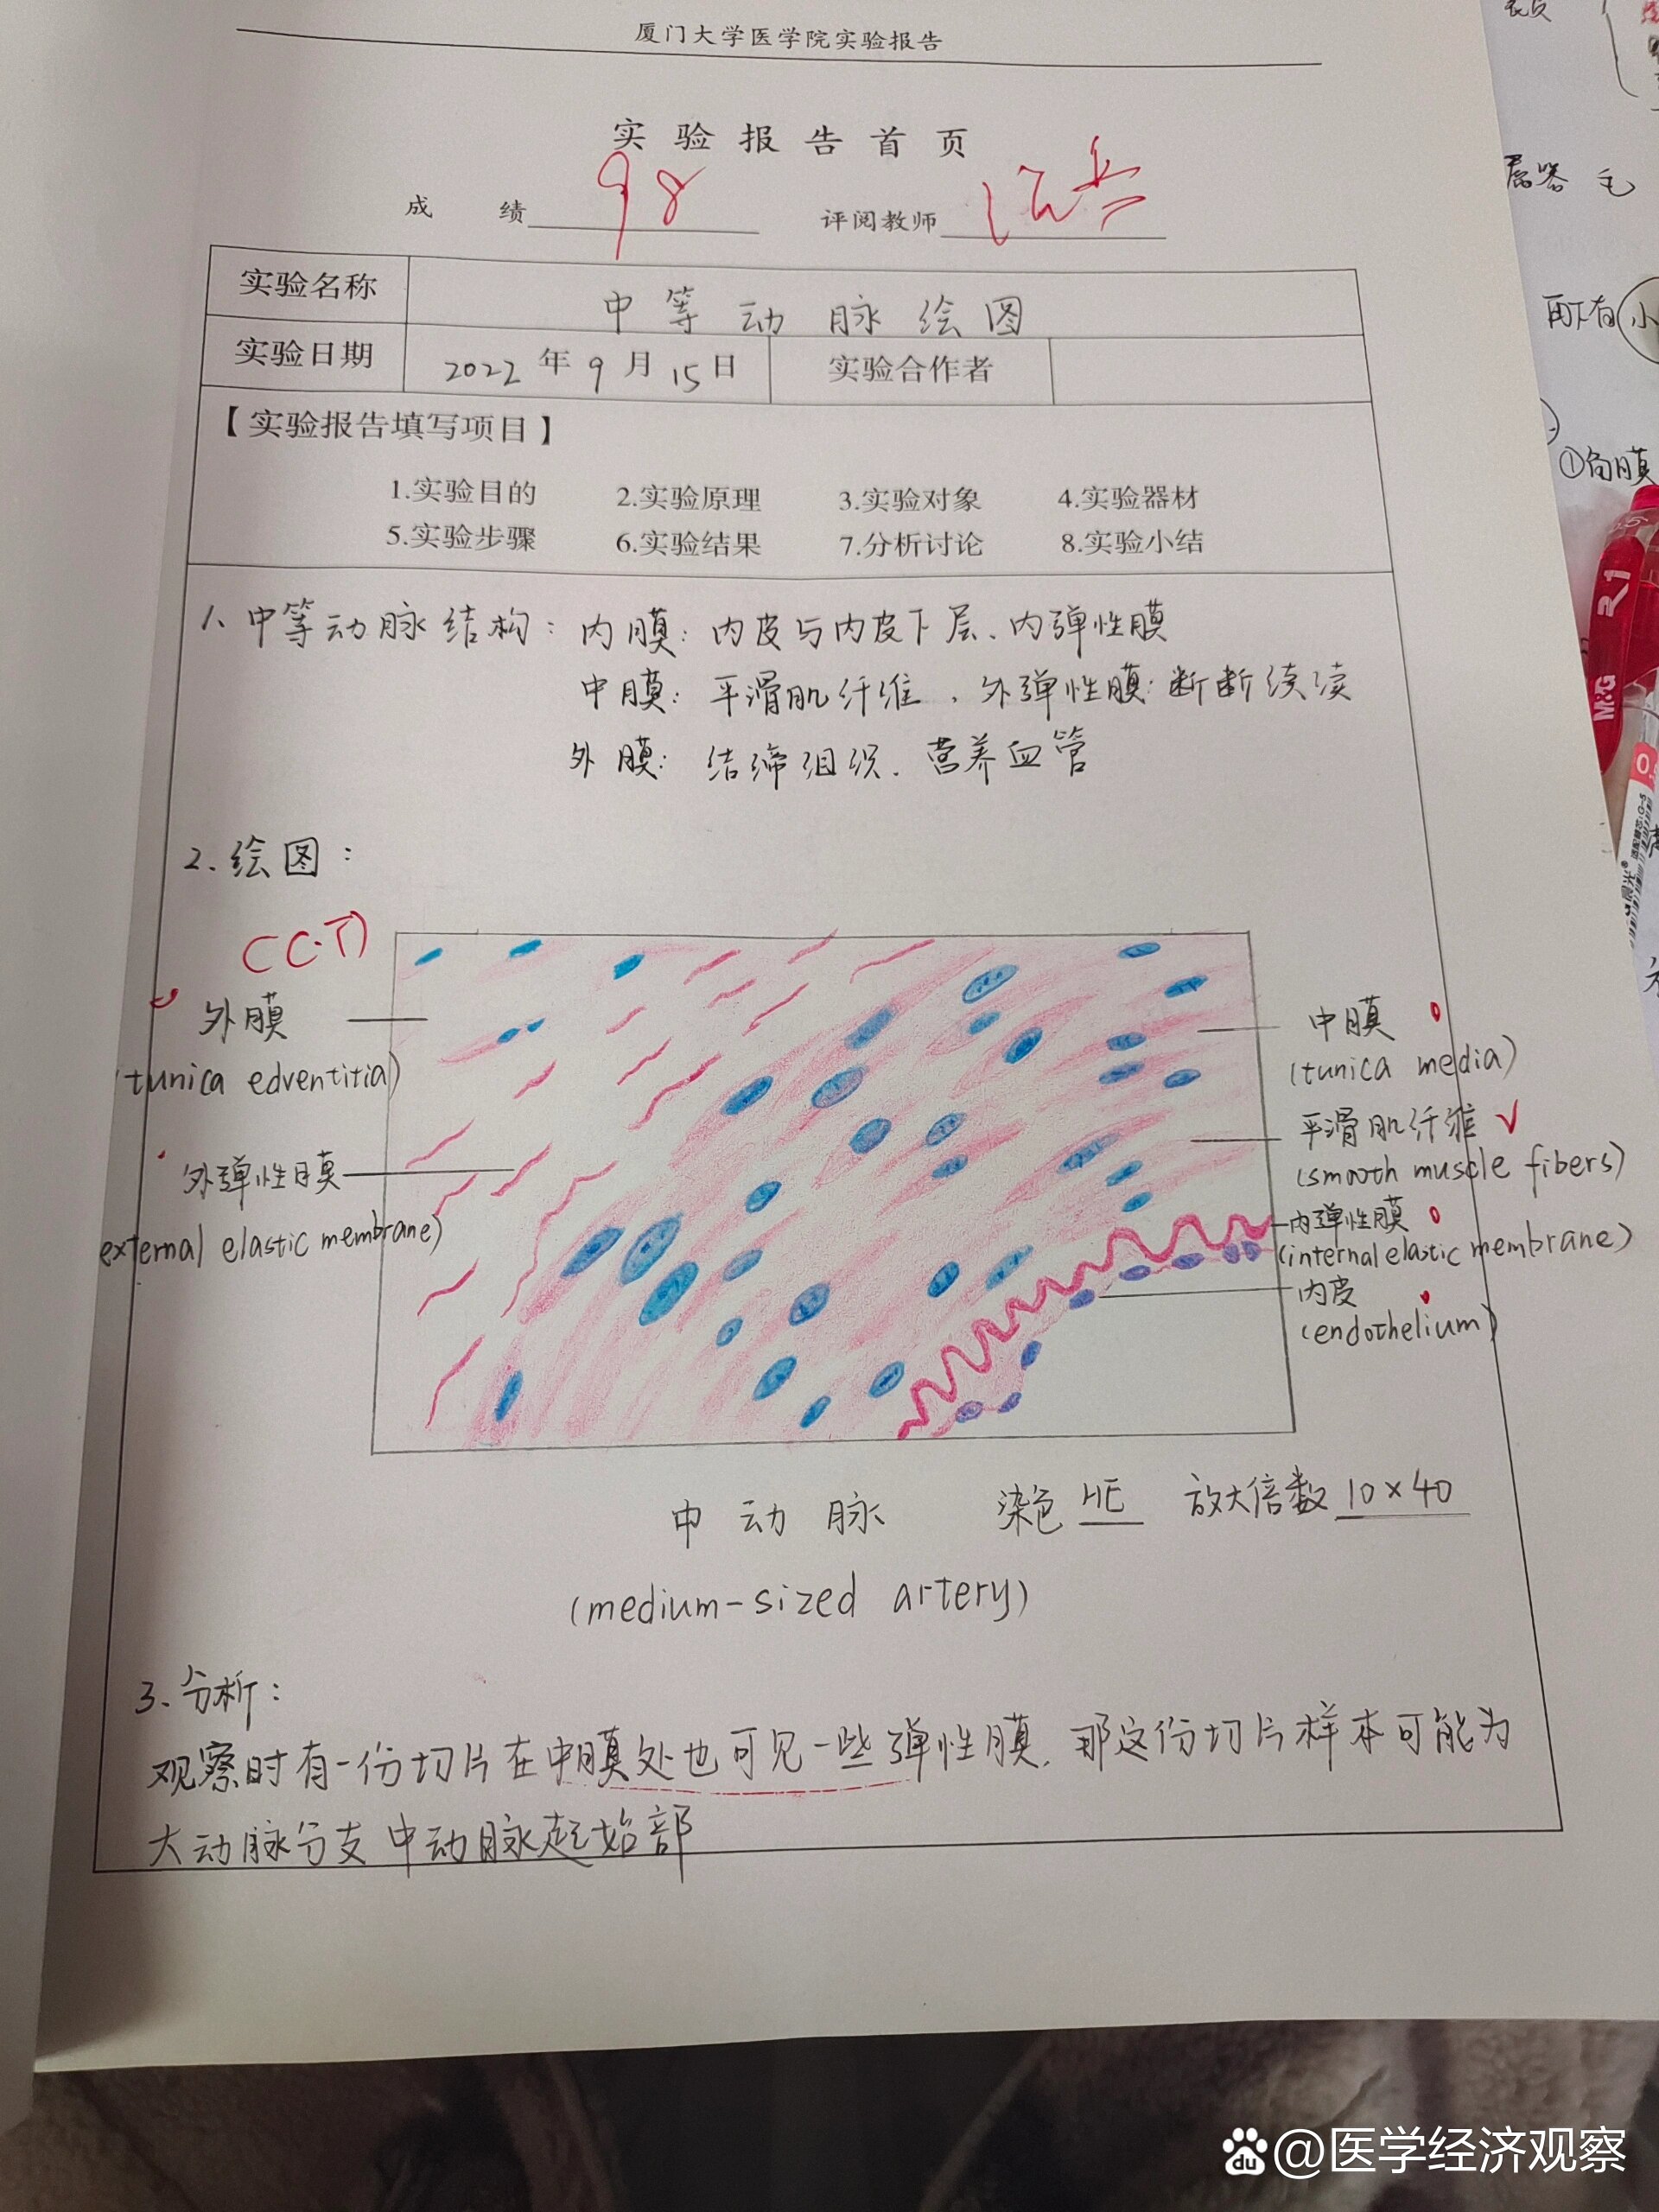 厦门大学医学院实验报告
实验报告首页
成 绩 98 评阅教师
实验名称 中等动脉绘图
实验日期 2022年9月15日 实验合作者
【实验报告填写项目】
1.实验目的 2.实验原理 3.实验对象 4.实验器材
5.实验步骤 6.实验结果 7.分析讨论 8.实验小结
1、中等动脉结构：内膜：内皮与内皮下层、内弹性膜
中膜：平滑肌纤维，外弹性膜：断断续续
外膜：结缔组织、营养血管
2、绘图：
(C.T)
外膜
(tunica edventitia)
外弹性膜
external elastic membrane)
中膜
(tunica media)
平滑肌纤维
(smooth muscle fibers)
内弹性膜
(internal elastic membrane)
内皮
(endothelium)
中动脉 染色 HE 放大倍数 10×40
(medium-sized artery)
3、分析：
观察时有一份切片在中膜处也可见一些弹性膜，那这份切片样本可能为
大动脉分支中动脉起始部
属器 毛
①角膜
M&G
R1
0.5
@医学经济观察